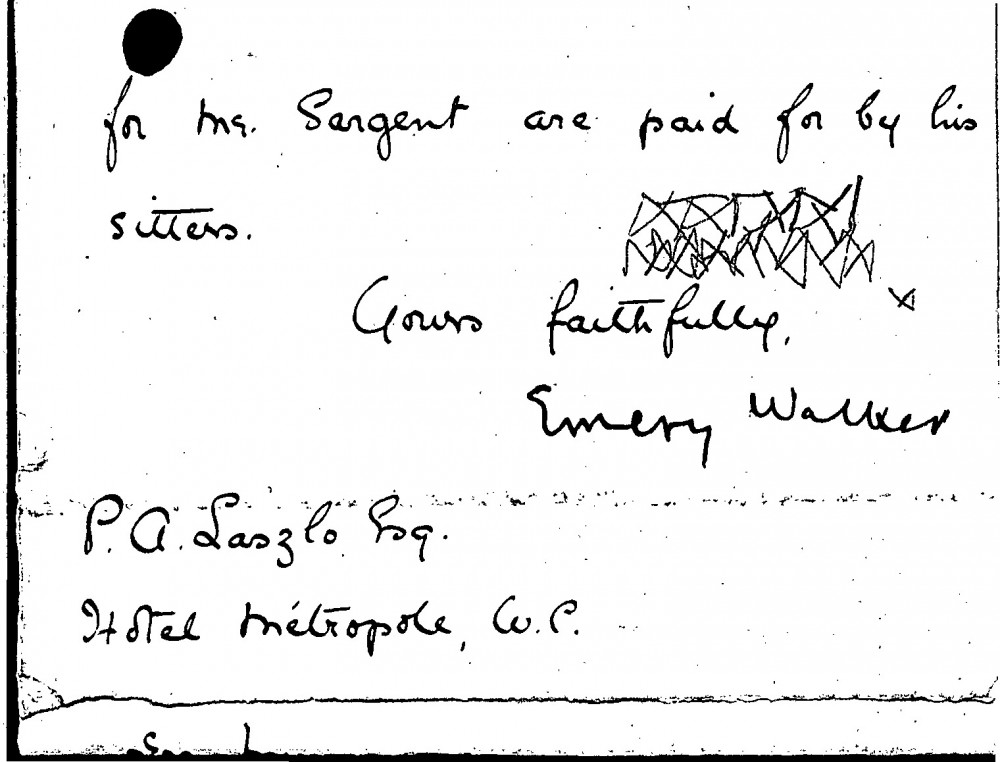 for Mr. Sargent are paid for by his
sitters.
Yours faithfully,
Emery Walker
P. A. Laszlo Esq.
Hotel Métropole, W.C.